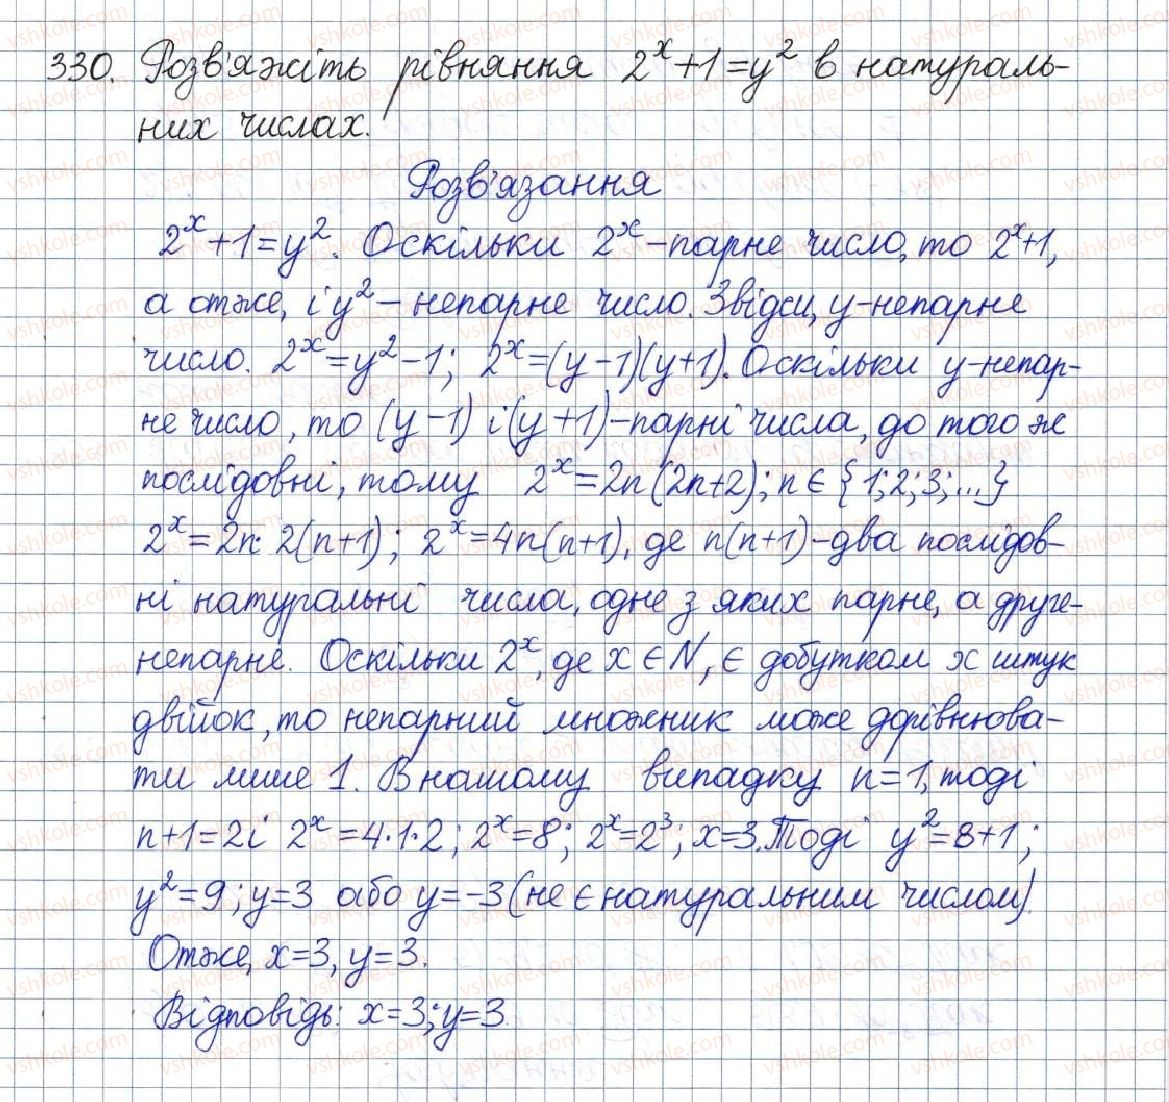 330. Розв'яжіть рівняння 2^x+1=y^2 в натураль-
них числах.
Розв'язання
2^x+1=y^2. Оскільки 2^x – парне число, то 2^x+1,
а отже, і y^2 – непарне число. Звідси, y – непарне
число. 2^x=y^2-1; 2^x=(y-1)(y+1). Оскільки y – непар-
не число, то (y-1) і (y+1) – парні числа, до того ж
послідовні, тому 2^x=2n(2n+2); n∈{1;2;3;...}
2^x=2n·2(n+1); 2^x=4n(n+1), де n(n+1) – два послідов-
ні натуральні числа, одне з яких парне, а друге –
непарне. Оскільки 2^x, де x∈N, є добутком x штук
двійок, то непарний множник може дорівнюва-
ти лише 1. В нашому випадку n=1, тоді
n+1=2 і 2^x=4·1·2; 2^x=8; 2^x=2^3; x=3. Тоді y^2=8+1;
y^2=9; y=3 або y=-3 (не є натуральним числом).
Отже, x=3, y=3.
Відповідь: x=3; y=3.